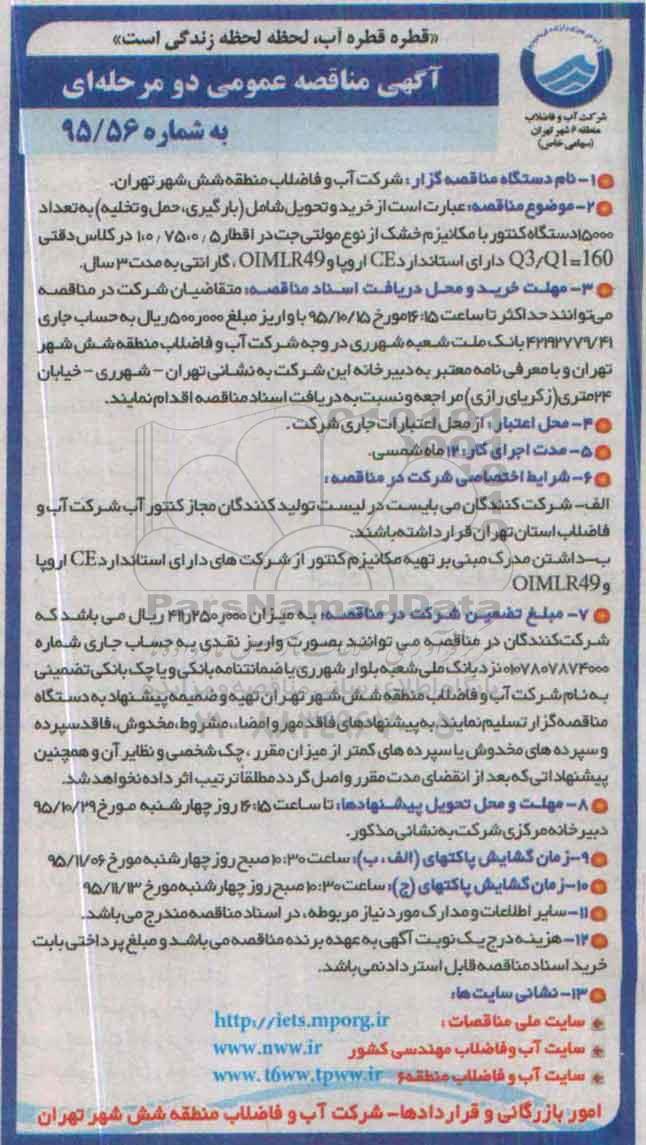 «قطره قطره آب، لحظه لحظه زندگی است»
آگهی مناقصه عمومی دو مرحله‌ای
به شماره ۹۵/۵۶
شرکت آب و فاضلاب
منطقه ۶ شهر تهران
(سهامی خاص)
۱- نام دستگاه مناقصه گزار: شرکت آب و فاضلاب منطقه شش شهر تهران.
۲- موضوع مناقصه: عبارت است از خرید و تحویل شامل (بارگیری، حمل و تخلیه) به تعداد
۱۵۰۰۰ دستگاه کنتور با مکانیزم خشک از نوع مولتی جت در اقطار ۰٫۵، ۰٫۷۵، ۱ در کلاس دقتی
Q3/Q1=160 دارای استاندارد CE اروپا و OIMLR49، گارانتی به مدت ۳ سال.
۳- مهلت خرید و محل دریافت اسناد مناقصه: متقاضیان شرکت در مناقصه
می‌توانند حداکثر تا ساعت ۱۶:۱۵ مورخ ۹۵/۱۰/۱۵ با واریز مبلغ ۵۰۰٫۰۰۰ ریال به حساب جاری
۴۲۱۹۲۷۷۹/۴۱ بانک ملت شعبه شهرری در وجه شرکت آب و فاضلاب منطقه شش شهر
تهران و با معرفی نامه معتبر به دبیرخانه این شرکت به نشانی تهران - شهرری - خیابان
۲۴متری (زکریای رازی) مراجعه و نسبت به دریافت اسناد مناقصه اقدام نمایند.
۴- محل اعتبار: از محل اعتبارات جاری شرکت.
۵- مدت اجرای کار: ۱۲ ماه شمسی.
۶- شرایط اختصاصی شرکت در مناقصه:
الف- شرکت کنندگان می بایست در لیست تولید کنندگان مجاز کنتور آب شرکت آب و
فاضلاب استان تهران قرار داشته باشند.
ب- داشتن مدرک مبنی بر تهیه مکانیزم کنتور از شرکت های دارای استاندارد CE اروپا
و OIMLR49
ParsNamadData
۷- مبلغ تضمین شرکت در مناقصه: به میزان ۴۱۱٫۲۵۰٫۰۰۰ ریال می باشد که
شرکت‌کنندگان در مناقصه می توانند بصورت واریز نقدی به حساب جاری شماره
۰۱۰۷۸۰۷۸۷۴۰۰۰ نزد بانک ملی شعبه بلوار شهرری یا ضمانتنامه بانکی و یا چک بانکی تضمینی
به نام شرکت آب و فاضلاب منطقه شش شهر تهران تهیه و ضمیمه پیشنهاد به دستگاه
مناقصه گزار تسلیم نمایند. به پیشنهادهای فاقد مهر و امضاء، مشروط، مخدوش، فاقد سپرده
و سپرده های مخدوش یا سپرده های کمتر از میزان مقرر، چک شخصی و نظایر آن و همچنین
پیشنهاداتی که بعد از انقضای مدت مقرر واصل گردد مطلقاً ترتیب اثر داده نخواهد شد.
۸- مهلت و محل تحویل پیشنهادها: تا ساعت ۱۶:۱۵ روز چهارشنبه مورخ ۹۵/۱۰/۲۹
دبیرخانه مرکزی شرکت به نشانی مذکور.
۹- زمان گشایش پاکتهای (الف، ب): ساعت ۱۰:۳۰ صبح روز چهارشنبه مورخ ۹۵/۱۱/۰۶
۱۰- زمان گشایش پاکتهای (ج): ساعت ۱۰:۳۰ صبح روز چهارشنبه مورخ ۹۵/۱۱/۱۳
۱۱- سایر اطلاعات و مدارک مورد نیاز مربوطه، در اسناد مناقصه مندرج می باشد.
۱۲- هزینه درج یک نوبت آگهی به عهده برنده مناقصه می باشد و مبلغ پرداختی بابت
خرید اسناد مناقصه قابل استرداد نمی باشد.
۱۳- نشانی سایت ها:
سایت ملی مناقصات: http://iets.mporg.ir
سایت آب و فاضلاب مهندسی کشور www.nww.ir
سایت آب و فاضلاب منطقه۶ www.t6ww.tpww.ir
امور بازرگانی و قراردادها- شرکت آب و فاضلاب منطقه شش شهر تهران